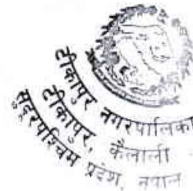 टीकापुर नगरपालिका
टीकापुर, कैलाली
सुदूरपश्चिम प्रदेश, नेपाल